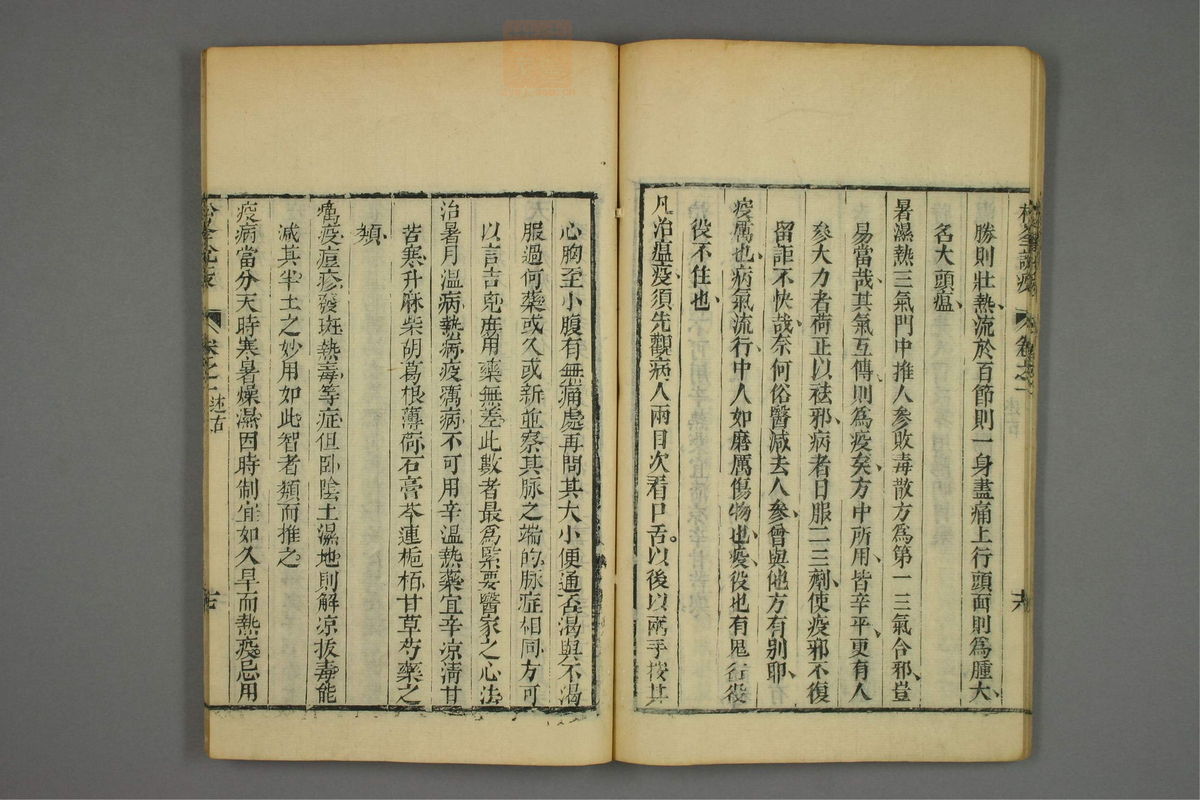 勝則壯熱流於百節則一身盡痛上行頭面則爲腫大
名大頭瘟
暑濕熱三氣門中推人參敗毒散方爲第一三氣合邪豈
易當哉其氣互傳則爲疫矣方中所用皆辛平更有人
參大力者荷正以祛邪病者日服二三劑使疫邪不復
留詎不快哉奈何俗醫減去人參曾與他方有别耶
疫厲也病氣流行中人如磨厲傷物也疫役也有鬼行役
役不住也
凡治瘟疫須先觀病人兩目次看口舌以後以兩手按其
心胸至小腹有無痛處再問其大小便通否渴與不渴
服過何藥或久或新並察其脉之端的脉症相同方可
以言吉克庶用藥無差此數者最爲緊要醫家之心法
治暑月溫病熱病疫癘病不可用辛溫熱藥宜辛凉淸甘
苦寒升麻柴胡葛根薄荷石膏芩連梔栢甘草芍藥之
類
瘟疫痘疹發斑熱毒等症但卧陰土濕地則解凉拔毒能
減其半土之妙用如此智者類而推之
松峯說疫 卷之一 述古
疫病當分天時寒暑燥濕因時制宜如久旱而熱疫忌用